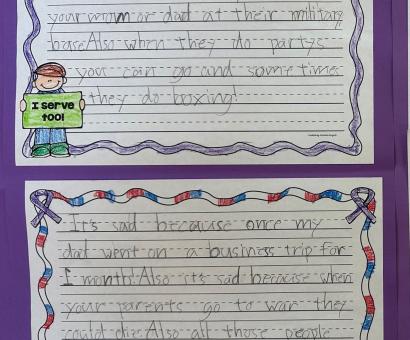 your mom or dad at their military
base Also when they do partys
you can go and some times
they do boxing!
I serve
too!
It's sad because once my
dad went on a business trip for
1 month! Also it's sad because when
your parents go to war they
could die. Also all those people